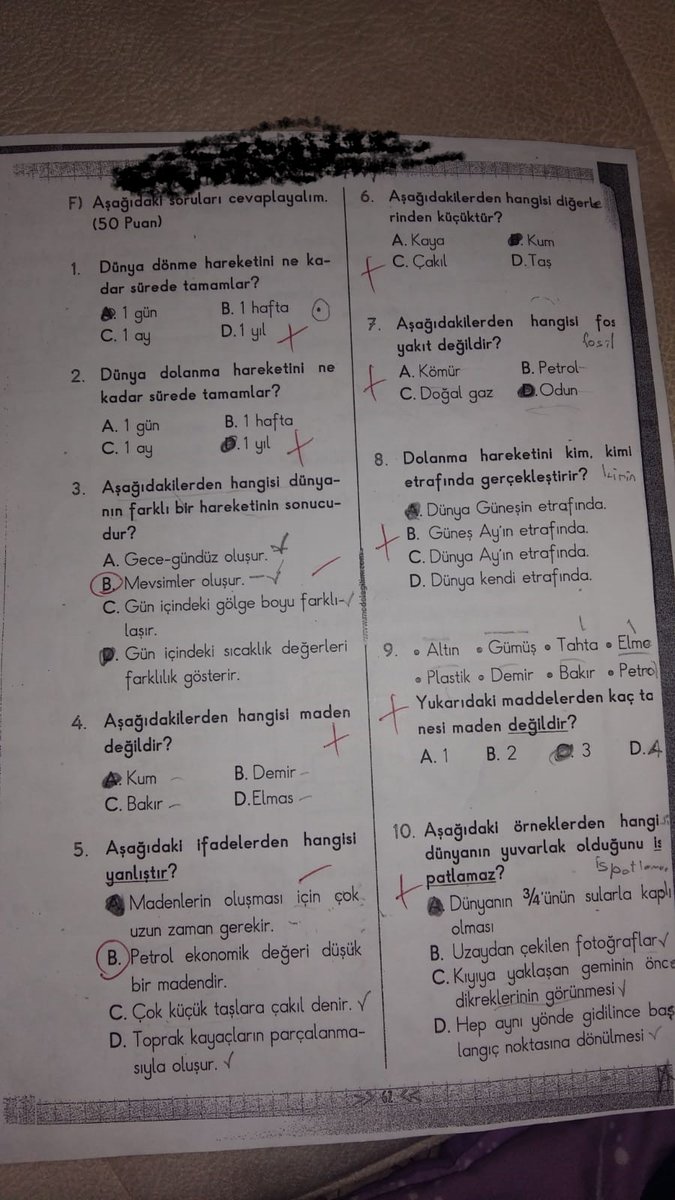 F) Aşağıdaki soruları cevaplayalım.
(50 Puan)
1. Dünya dönme hareketini ne ka-
dar sürede tamamlar?
A. 1 gün B. 1 hafta
C. 1 ay D. 1 yıl
2. Dünya dolanma hareketini ne
kadar sürede tamamlar?
A. 1 gün B. 1 hafta
C. 1 ay D. 1 yıl
3. Aşağıdakilerden hangisi dünya-
nın farklı bir hareketinin sonucu-
dur?
A. Gece-gündüz oluşur.
B. Mevsimler oluşur.
C. Gün içindeki gölge boyu farklı-
laşır.
D. Gün içindeki sıcaklık değerleri
farklılık gösterir.
4. Aşağıdakilerden hangisi maden
değildir?
A. Kum B. Demir
C. Bakır D. Elmas
5. Aşağıdaki ifadelerden hangisi
yanlıştır?
A. Madenlerin oluşması için çok
uzun zaman gerekir.
B. Petrol ekonomik değeri düşük
bir madendir.
C. Çok küçük taşlara çakıl denir.
D. Toprak kayaçların parçalanma-
sıyla oluşur.
6. Aşağıdakilerden hangisi diğerle
rinden küçüktür?
A. Kaya B. Kum
C. Çakıl D. Taş
7. Aşağıdakilerden hangisi fos
fosil
yakıt değildir?
A. Kömür B. Petrol
C. Doğal gaz D. Odun
8. Dolanma hareketini kim, kimi
kimin
etrafında gerçekleştirir?
A. Dünya Güneşin etrafında.
B. Güneş Ay'ın etrafında.
C. Dünya Ay'ın etrafında.
D. Dünya kendi etrafında.
9. • Altın • Gümüş • Tahta • Elme
• Plastik • Demir • Bakır • Petrol
Yukarıdaki maddelerden kaç ta
nesi maden değildir?
A. 1 B. 2 C. 3 D. 4
10. Aşağıdaki örneklerden hangi
dünyanın yuvarlak olduğunu is
patlamaz?
A. Dünyanın 3/4'ünün sularla kaplı
olması
B. Uzaydan çekilen fotoğraflar
C. Kıyıya yaklaşan geminin önce
dikreklerinin görünmesi
D. Hep aynı yönde gidilince baş
langıç noktasına dönülmesi
>> 62 <<